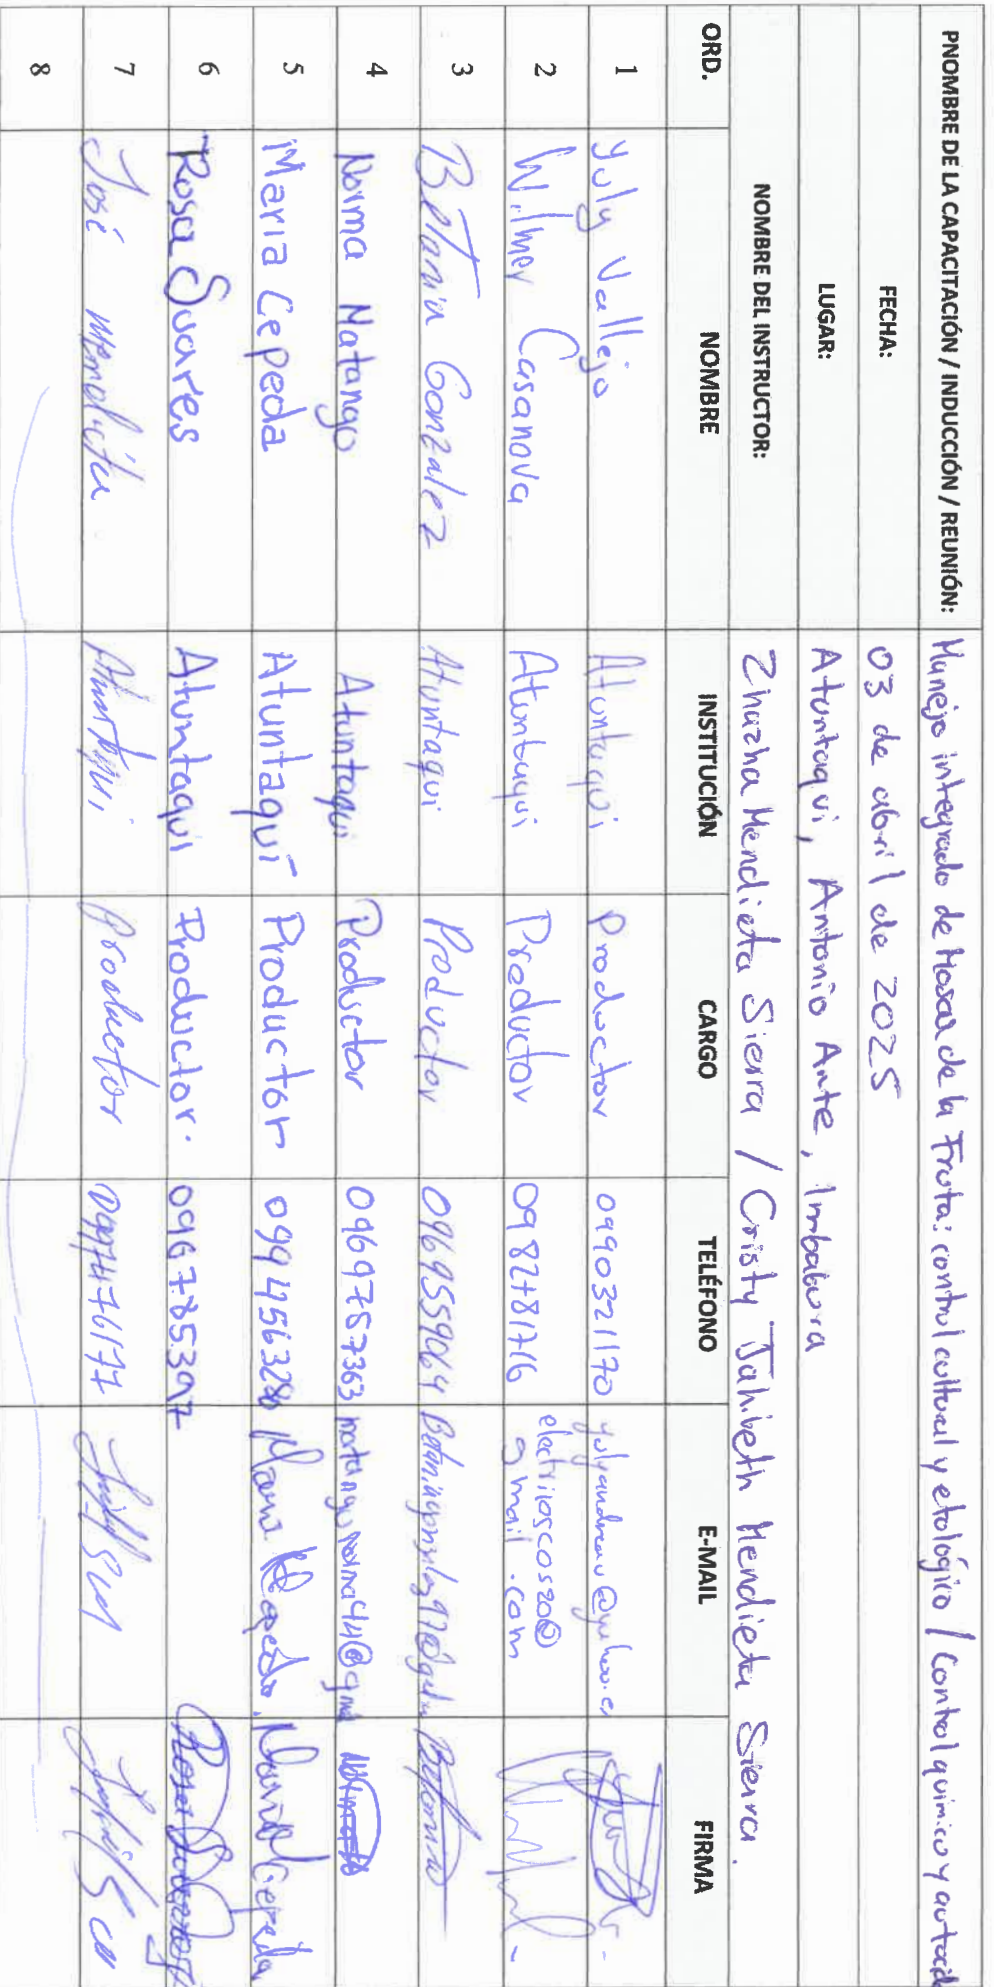 PNOMBRE DE LA CAPACITACIÓN / INDUCCIÓN / REUNIÓN: Manejo integrado de Mosca de la Fruta: control cultural y etológico / Control químico y autocid
FECHA: 03 de abril de 2025
LUGAR: Atuntaqui, Antonio Ante, Imbabura
NOMBRE DEL INSTRUCTOR: Zhazha Mendieta Sierra / Cristy Jahibeth Mendieta Sierra.
ORD. NOMBRE INSTITUCIÓN CARGO TELÉFONO E-MAIL FIRMA
1 Yuly Vallejo Atuntaqui Productor 0990321170
2 Wilmer Casanova Atuntaqui Productor 0982781716 electrioscos20@
gmail.com
3 Betania Gonzalez Atuntaqui Productor 0969559064
4 Norma Matango Atuntaqui Productor 0969787363
5 Maria Cepeda Atuntaqui Productor 0994956328 Maria Cepeda
6 Rosa Suares Atuntaqui Productor. 096785397 Rosa
7 José Mendieta Atuntaqui Productor
8